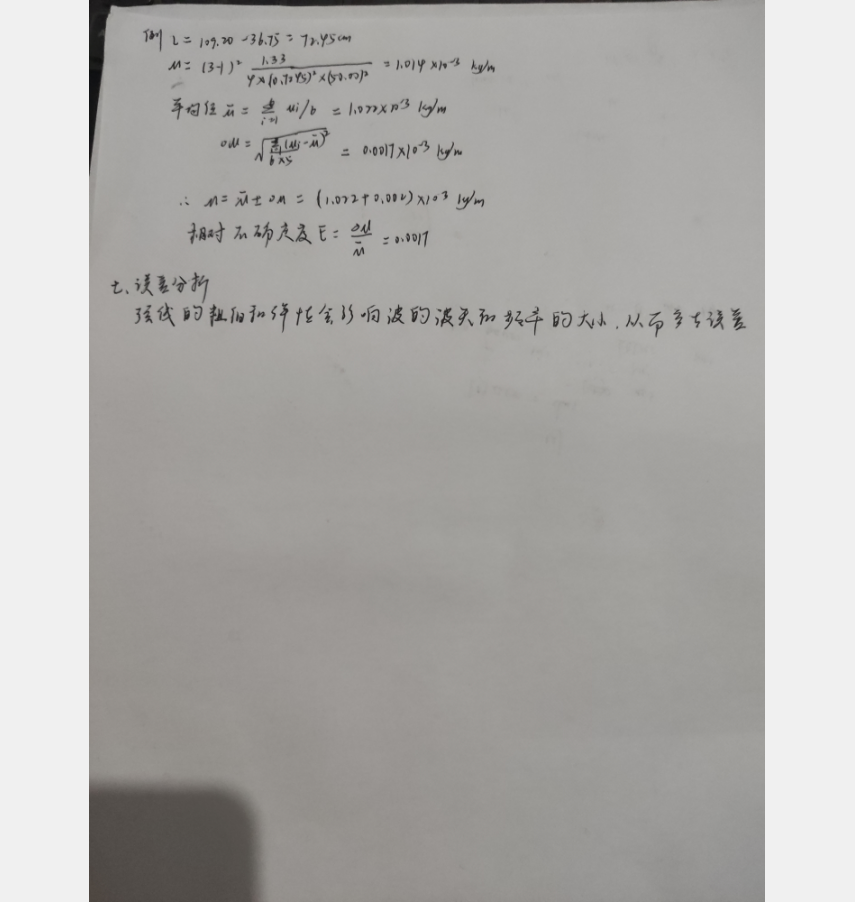 例 L = 109.20 - 36.75 = 72.45cm
μ = (3-1)² 1.33 / 4×(0.7245)²×(50.00)² = 1.014×10⁻³ kg/m
平均值 μ̄ = Σ i=1 μi/6 = 1.022×10⁻³ kg/m
σμ = √(Σ(μi-μ̄)² / 6×5) = 0.0017×10⁻³ kg/m
∴ μ = μ̄ ± σμ = (1.022+0.002)×10⁻³ kg/m
相对不确定度 E = σμ / μ̄ = 0.0017
七、误差分析
弦线的粗细和弹性会影响波的波长和频率的大小,从而产生误差